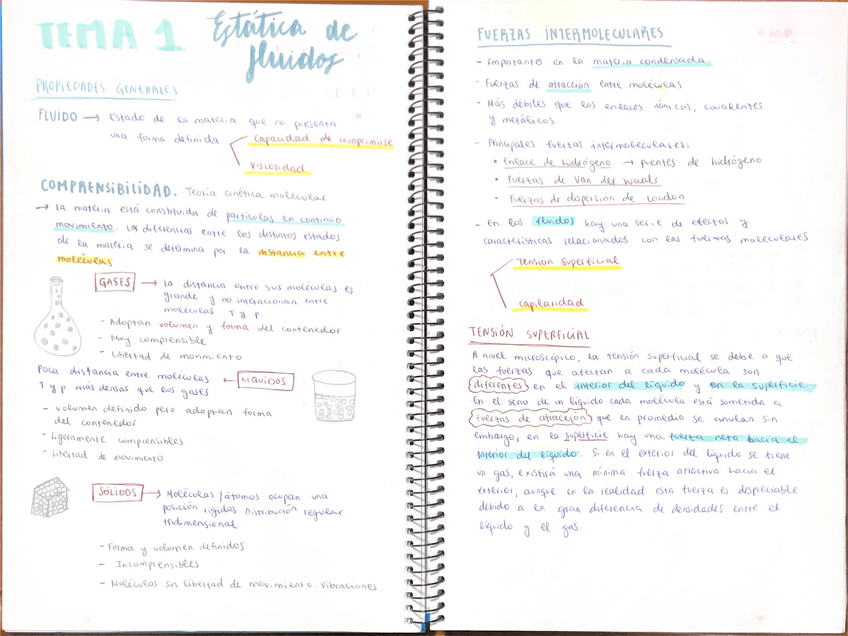 TEMA 1 Estática de
fluidos
PROPIEDADES GENERALES
FLUIDO → Estado de la materia que no presenta
una forma definida
Capacidad de comprimirse
Viscosidad
COMPRENSIBILIDAD. Teoría cinética molecular
→ La materia está constituida de partículas en continuo
movimiento. Las diferencias entre los distintos estados
de la materia se determina por la distancia entre
moléculas
GASES → La distancia entre sus moléculas es
grande y no interacionan entre
moléculas T y P.
- Adoptan volumen y forma del contenedor
- Muy comprensible
- Libertad de movimiento
Poca distancia entre moléculas ← LÍQUIDOS
T y p más densas que los gases
- volumen definido pero adoptan forma
del contenedor
- Ligeramente comprensibles
- Libertad de movimiento
SÓLIDOS → Moléculas / átomos ocupan una
posición rígidas Distribución regular
tridimensional
- Forma y volumen definidos
- Incomprensibles
- Moléculas sin libertad de movimiento. Vibraciones
FUERZAS INTERMOLECULARES
- Importante en la materia condensada.
- Fuerzas de atracción entre moléculas
- Más débiles que los enlaces iónicos, covalentes
y metálicos.
- Principales fuerzas intermoleculares:
• Enlace de hidrógeno → puentes de hidrógeno
• Fuerzas de Van der Waals
• Fuerzas de dispersión de London
- En los fluidos hay una serie de efectos y
características relacionados con las fuerzas moleculares
Tensión superficial
Capilaridad
TENSIÓN SUPERFICIAL
A nivel microscópico, la tensión superficial se debe a que
las fuerzas que afectan a cada molécula son
diferentes en el interior del líquido y en la superficie.
En el seno de un líquido cada molécula está sometida a
fuerzas de atracción que en promedio se anulan sin
embargo, en la superficie hay una fuerza neta hacia el
interior del líquido. Si en el exterior del líquido se tiene
un gas, existirá una mínima fuerza atractiva hacia el
exterior, aunque en la realidad esta fuerza es despreciable
debido a la gran diferencia de densidades entre el
líquido y el gas.